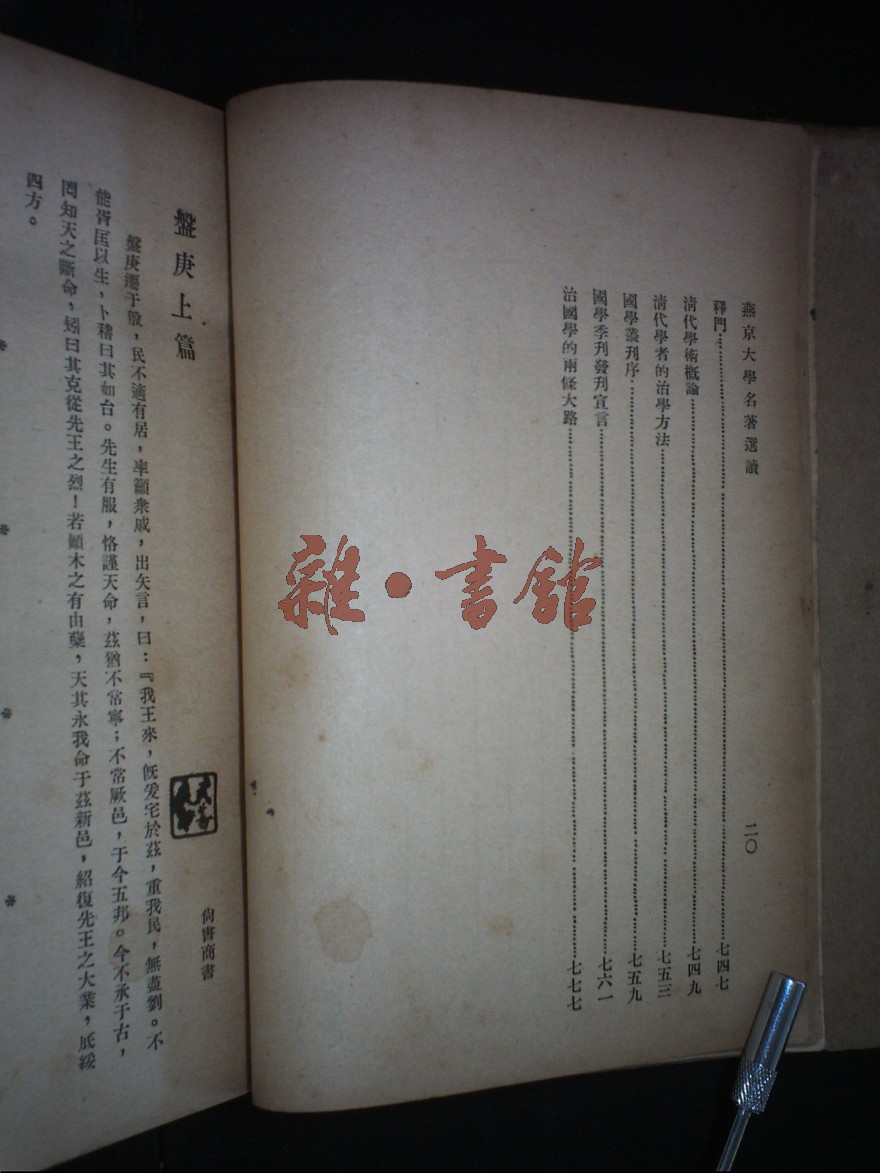 燕京大學名著選讀
二〇
釋門……七四七
清代學術概論……七四九
清代學者的治學方法……七五三
國學叢刊序……七五九
國學季刊發刊宣言……七六一
治國學的兩條大路……七七七
雜·書館
盤庚上篇
尙書商書
盤庚遷于殷，民不適有居，率籲衆戚，出矢言，曰：『我王來，旣爰宅於茲，重我民，無盡劉。不
能胥匡以生，卜稽曰其如台。先生有服，恪謹天命，茲猶不常寧；不常厥邑，于今五邦。今不承于古，
罔知天之斷命，矧曰其克從先王之烈！若顚木之有由蘖，天其永我命于茲新邑，紹復先王之大業，厎綏
四方。